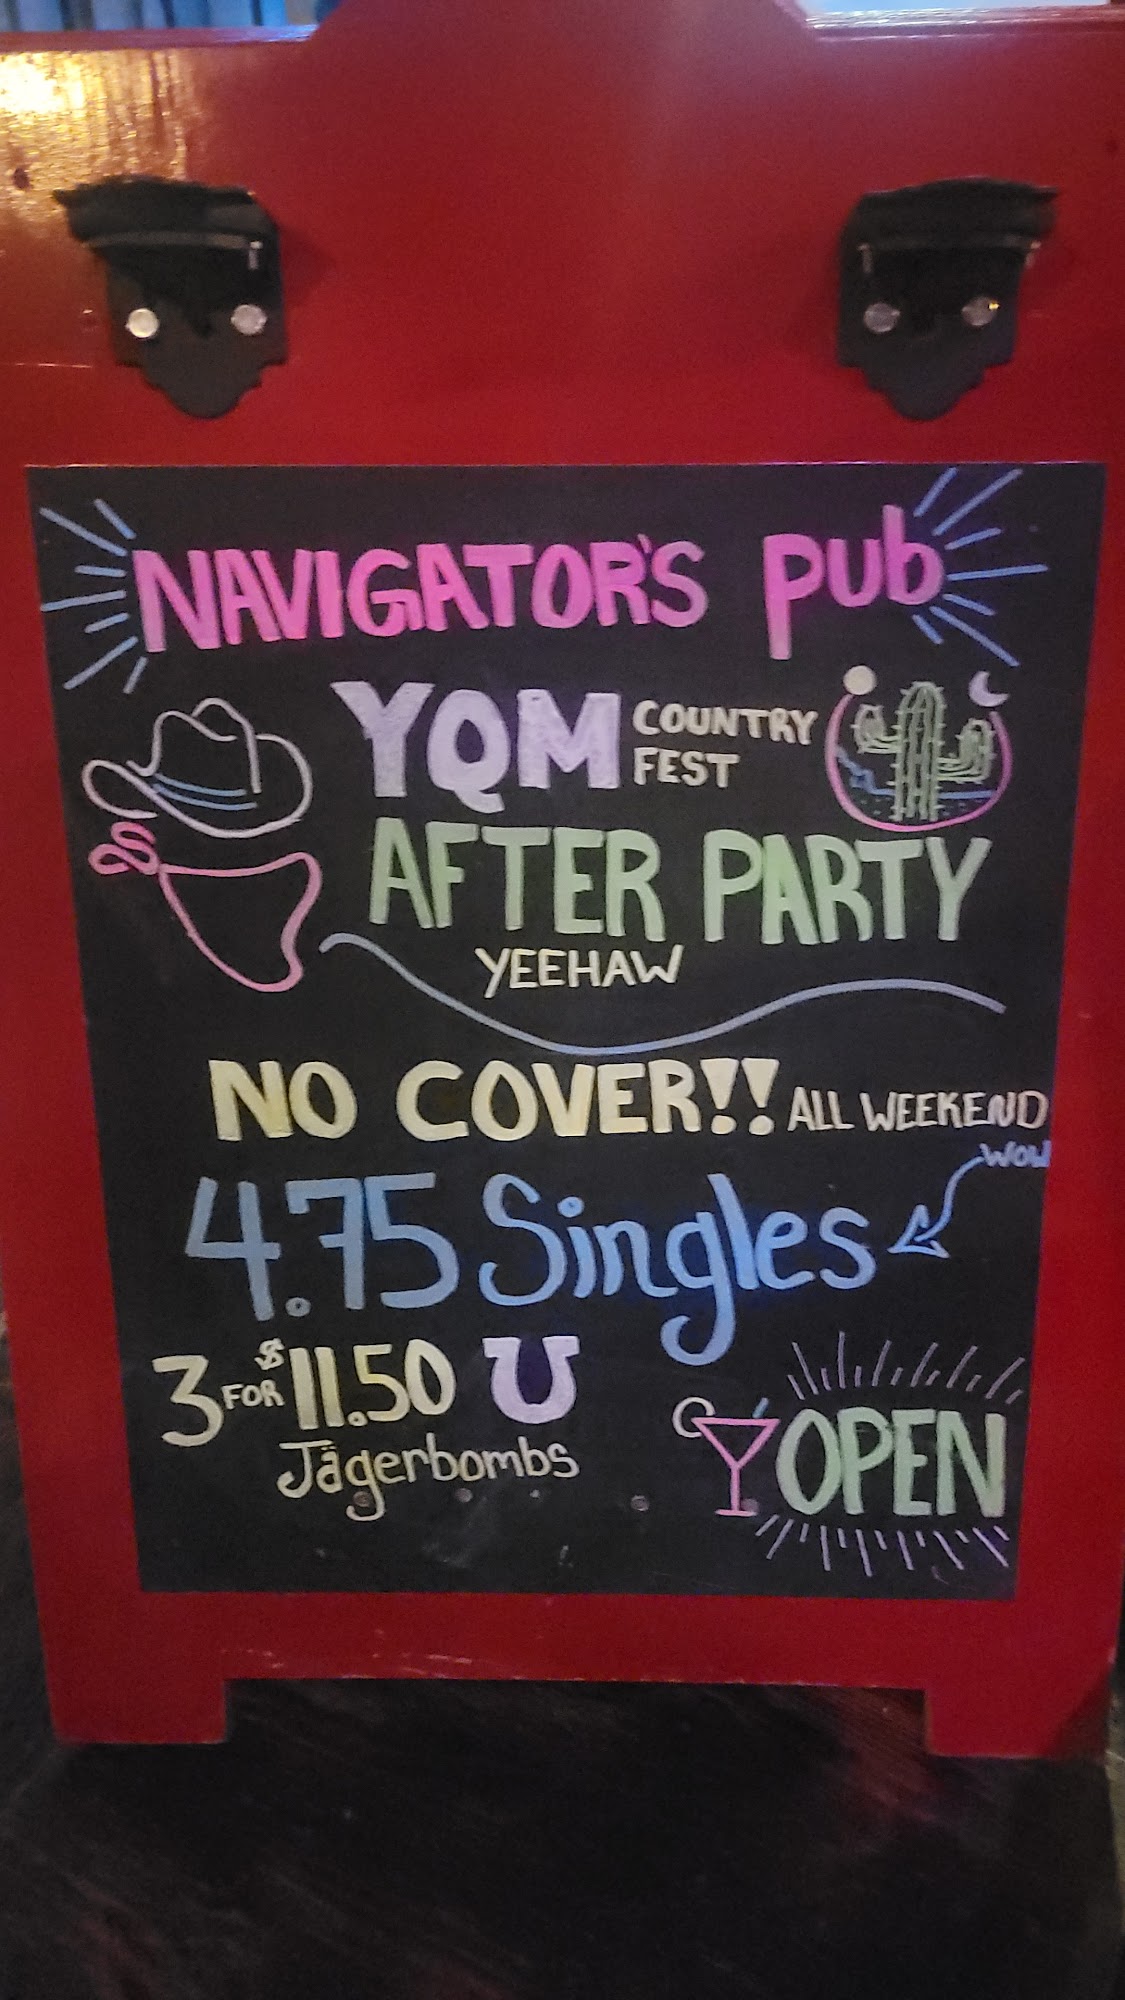 NAVIGATOR'S PUB
YQM COUNTRY FEST
AFTER PARTY
YEEHAW
NO COVER!! ALL WEEKEND
WOW
4.75 Singles
3 FOR $11.50
Jägerbombs
OPEN